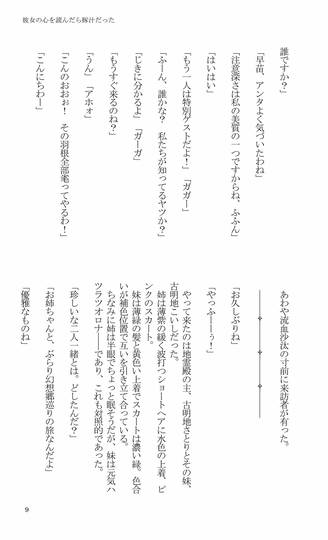 彼女の心を読んだら豚汁だった
誰ですか？」
「早苗、アンタよく気づいたわね」
「注意深さは私の美質の一つですからね、ふふん」
「はいはい」
「もう一人は特別ゲストだよ！」「ガガー」
「ふーん、誰かな？　私たちが知ってるヤツか？」
「じきに分かるよ」「ガーガ」
「もうすぐ来るのね？」
「うん」「アホォ」
「このおおぉ！　その羽根全部毟ってやるわ！」
「こんにちわー」
あわや流血沙汰の寸前に来訪者が有った。
「お久しぶりね」
「やっふーーぅ！」
やって来たのは地霊殿の主、古明地さとりとその妹、
古明地こいしだった。
姉は薄紫の緩く波打つショートヘアに水色の上着、ピ
ンクのスカート。
妹は薄緑の髪と黄色い上着でスカートは濃い緑。色合
いが補色位置で互いを引き立て合っている。
ちなみに姉は半眼でちょっと眠そうだが、妹は元気ハ
ツラツオロナ――であり、これも対照的であった。
「珍しいな二人一緒とは。どしたんだ？」
「お姉ちゃんと、ぶらり幻想郷巡りの旅なんだよ」
「優雅なものね」
9